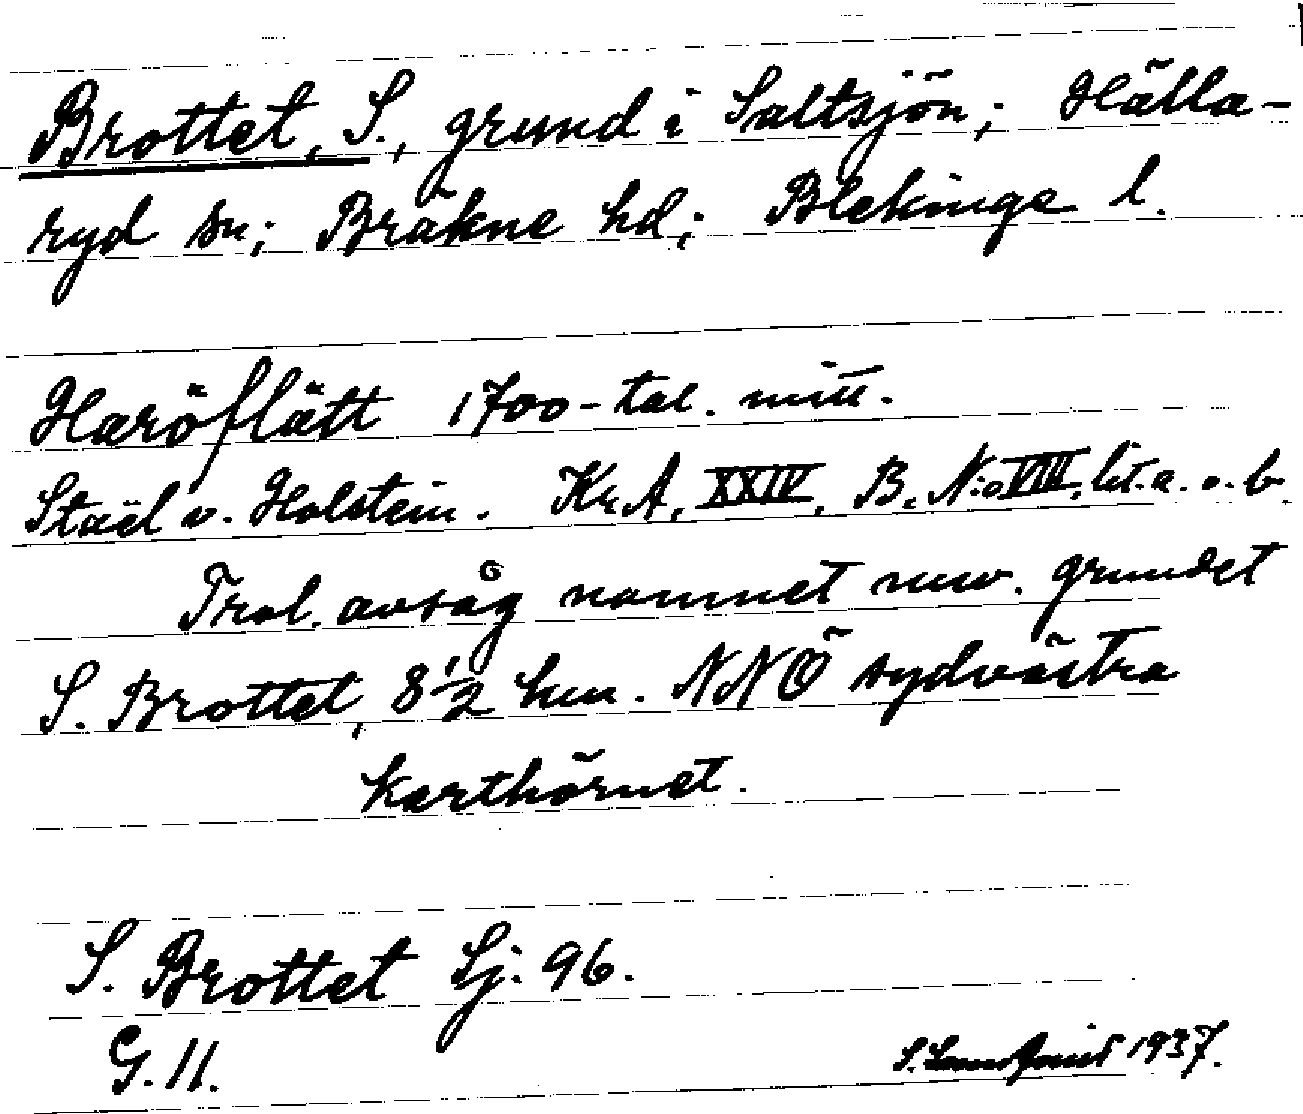 Brottet, S., grund i Saltsjön; Hälla-
ryd sn; Bräkne hd; Blekinge l.
Haröflätt 1700-tal. mitt.
Staël v. Holstein. Kr.A. XXIV, B. No VIII, lit. a. o. b.
Trol. avsåg namnet nuv. grundet
S. Brottet, 8 1/2 km. NNÖ sydvästra
karthörnet.
S. Brottet Sj. 96.
G. 11.
S. 1937.